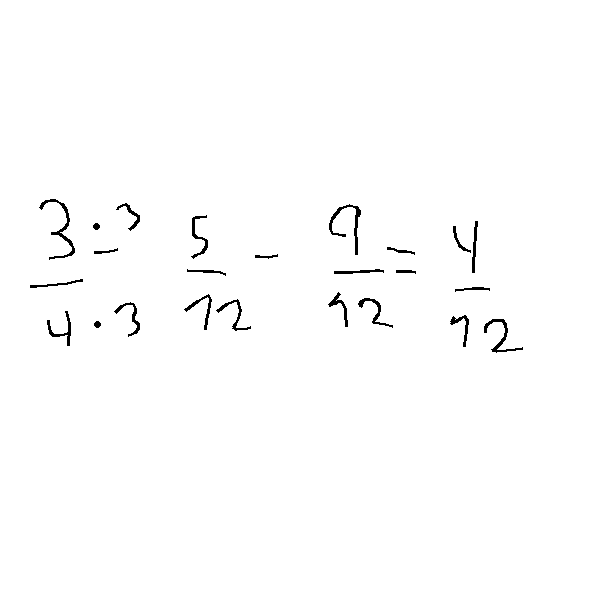 3·3/4·3 - 5/12 - 9/12 = 4/12